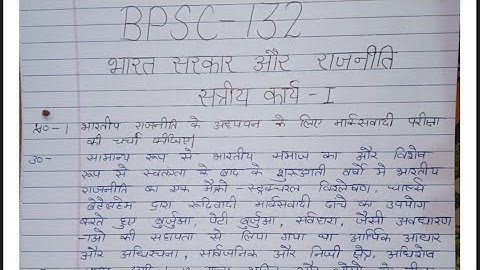 BPSC-132
भारत सरकार और राजनीति
सत्रीय कार्य - I
प्र०-1 भारतीय राजनीति के अध्ययन के लिए मार्क्सवादी परीक्षा
की चर्चा कीजिए।
उ०- सामान्य रूप से भारतीय समाज का और विशेष
रूप से स्वतंत्रता के बाद के शुरूआती वर्षो मे भारतीय
राजनीति का एक मैक्रो - स्ट्रक्चरल विश्लेषण, चार्ल्स
बेटेलहेम द्वारा रूढिवादी मार्क्सवादी ढांचे का उपयोग
करते हुए बुर्जुआ, पेटी बुर्जुआ, सर्वहारा, जैसी अवधारण
-ाओं की सहायता से लिया गया था आर्थिक आधार
और अधिरचना, सार्वजनिक और निजी क्षेत्र, अधिशेष